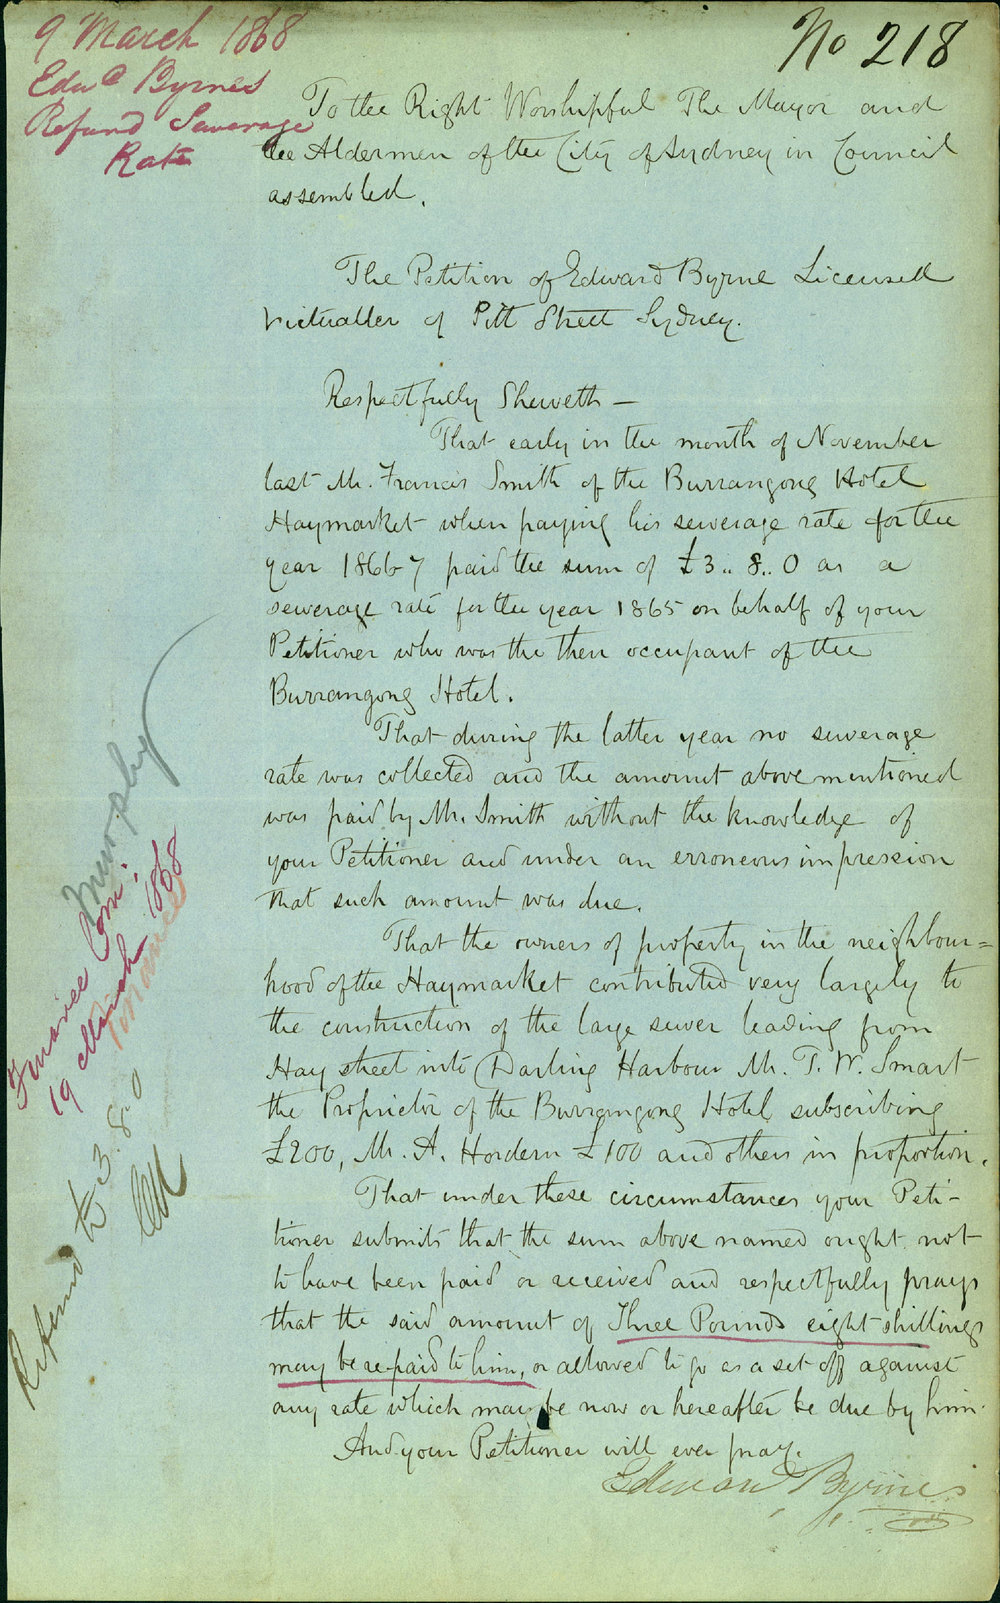 9 March 1868
Edwd Byrnes
Refund Sewerage
Rate
No 218
To the Right Worshipful The Mayor and
the Aldermen of the City of Sydney in Council
assembled.
The Petition of Edward Byrne Licensed
Victualler of Pitt Street Sydney.
Respectfully Sheweth —
That early in the month of November
last Mr. Francis Smith of the Burrangong Hotel
Haymarket when paying his sewerage rate for the
year 1866-7 paid the sum of £3.. 8.. 0 as a
sewerage rate for the year 1865 on behalf of your
Petitioner who was the then occupant of the
Burrangong Hotel.
That during the latter year no sewerage
rate was collected and the amount above mentioned
was paid by Mr. Smith without the knowledge of
your Petitioner and under an erroneous impression
that such amount was due.
That the owners of property in the neighbour=
hood of the Haymarket contributed very largely to
the construction of the large sewer leading from
Hay street into Darling Harbour Mr. T. W. Smart
the Proprietor of the Burrangong Hotel subscribing
£200, Mr. A. Hordern £100 and others in proportion.
That under these circumstances your Peti-
tioner submits that the sum above named ought not
to have been paid or received and respectfully prays
that the said amount of Three Pounds eight shillings
may be re-paid to him, or allowed to go as a set off against
any rate which may be now or hereafter be due by him.
And your Petitioner will ever pray.
Edward Byrnes
Murphy
Finance Com:
19 March 1868
Finance
Refund £3.8.0